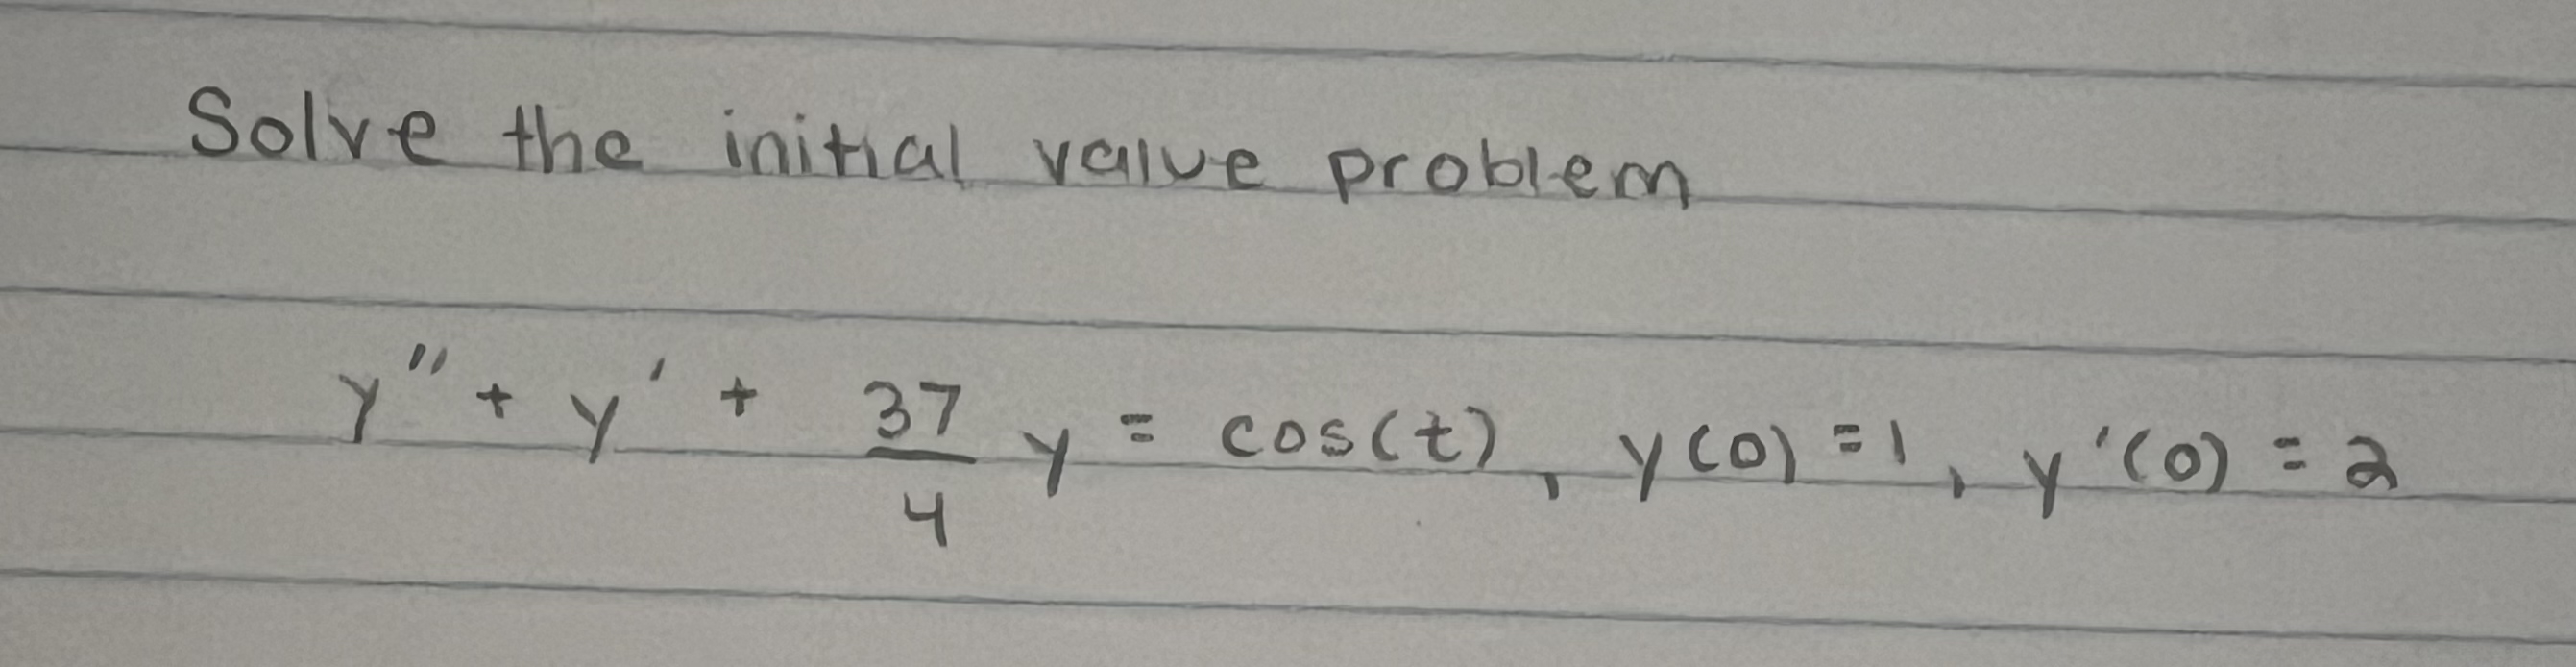 Solve the initial value problem
y'' + y' + 37/4 y = cos(t), y(0) = 1, y'(0) = 2